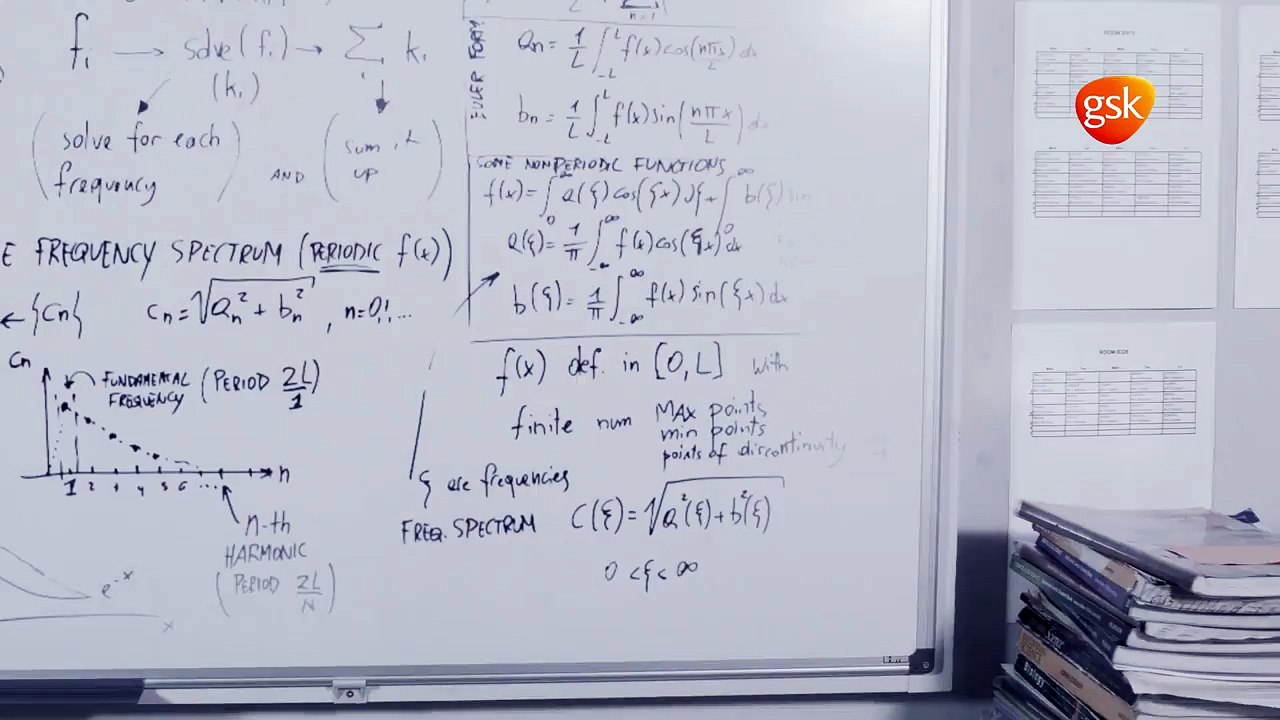 fᵢ → solve(fᵢ) → Σ kᵢ
i
(kᵢ)
(solve for each
frequency)
AND
(sum it
up)
E FREQUENCY SPECTRUM (PERIODIC f(x))
← {Cn}
Cn = √(an² + bn²), n=0,1,...
Cn
FUNDAMENTAL
FREQUENCY
(PERIOD 2L/1)
1 2 3 4 5 6 .... n
n-th
HARMONIC
(PERIOD 2L/N)
e^-x
x
n=1
FORM
an = 1/L ∫_-L^L f(x)cos(nπx/L) dx
bn = 1/L ∫_-L^L f(x)sin(nπx/L) dx
SOME NONPERIODIC FUNCTIONS
f(x) = ∫_0^∞ a(ξ)cos(ξx)dξ + ∫_0^∞ b(ξ)sin
a(ξ) = 1/π ∫_-∞^∞ f(x)cos(ξx)dx
b(ξ) = 1/π ∫_-∞^∞ f(x)sin(ξx)dx
f(x) def. in [0,L] with
finite num MAX points
min points
points of discontinuity
ξ are frequencies
FREQ. SPECTRUM C(ξ) = √(a²(ξ) + b²(ξ))
0 < ξ < ∞
gsk
BIOLOGY